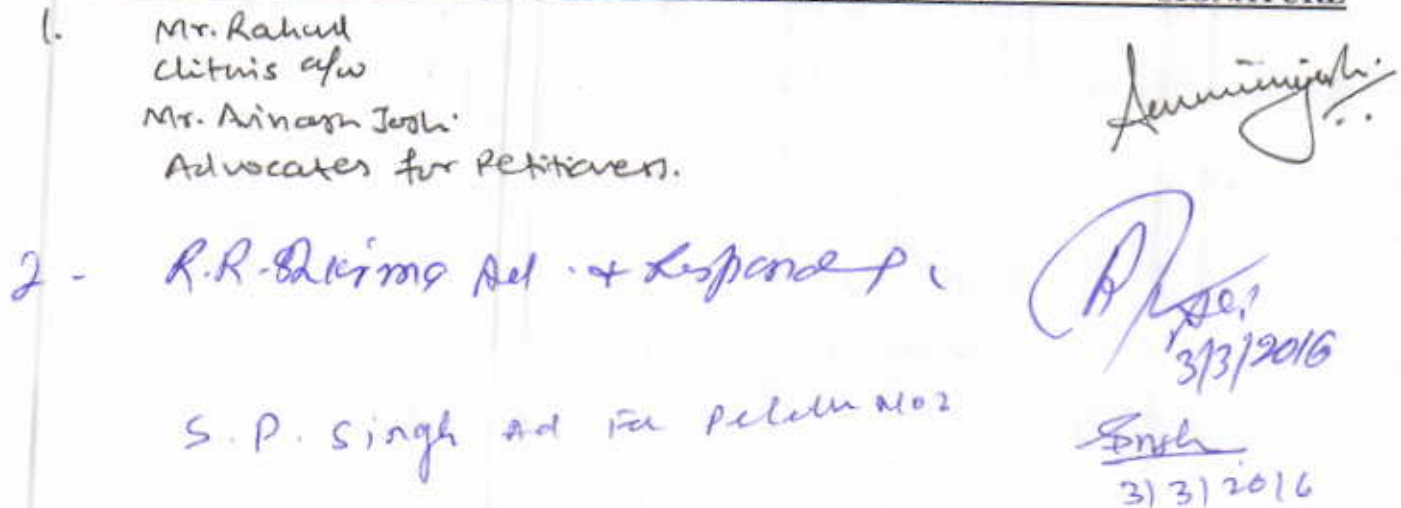 SIGNATURE
1. Mr. Rahul
Chitnis a/w
Mr. Avinash Joshi
Advocates for Petitioners.
2 - R.R. Ad. Respondent
3/3/2016
S.P. Singh Ad For No 2
Singh
3/3/2016